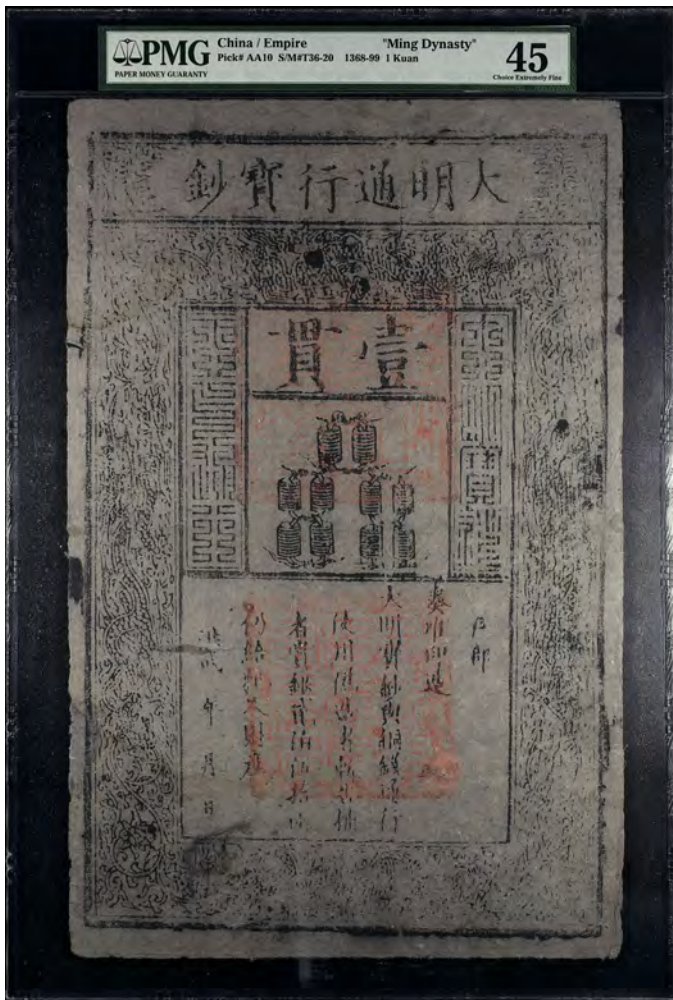 PMG
PAPER MONEY GUARANTY
China / Empire "Ming Dynasty"
Pick# AA10 S/M#T36-20 1368-99 1 Kuan
45
Choice Extremely Fine
大明通行寶鈔
壹貫
戶部
奏准印造
大明寶鈔與銅錢通行
使用偽造者斬告捕
者賞銀貳伯伍拾兩
仍給犯人財產
洪武 年 月 日